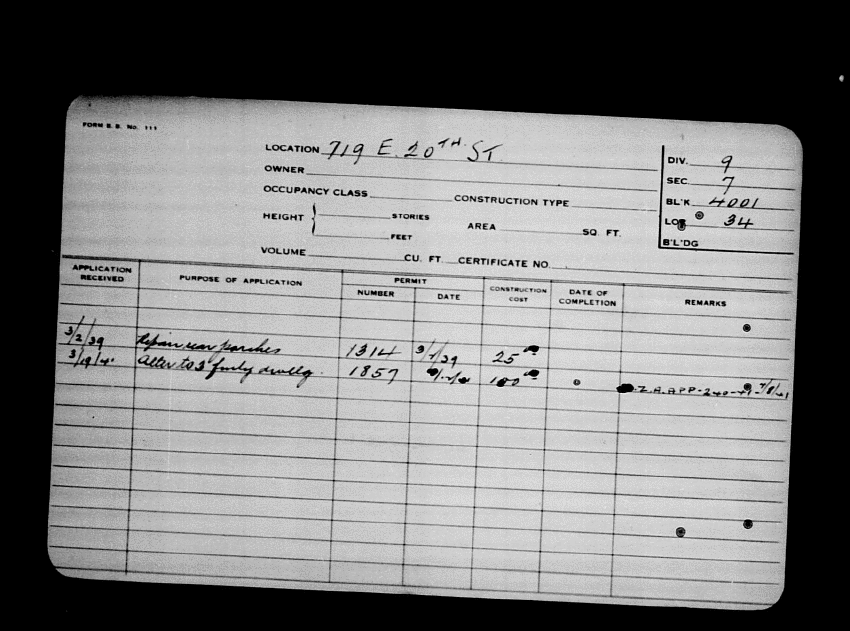 FORM B. B. No. 111
LOCATION 719 E. 20TH ST
OWNER
OCCUPANCY CLASS CONSTRUCTION TYPE
HEIGHT STORIES
FEET
AREA SQ. FT.
VOLUME CU. FT. CERTIFICATE NO.
DIV. 9
SEC. 7
BL'K 4001
LOT 34
B'L'DG
APPLICATION RECEIVED PURPOSE OF APPLICATION PERMIT NUMBER DATE CONSTRUCTION COST DATE OF COMPLETION REMARKS
3/2/39 Repair rear porches 1314 3/ /39 25 00
3/19/4 Alter to 3 fmly dwellg. 1857 100 00 Z.A. APP-240-41-7/8/41